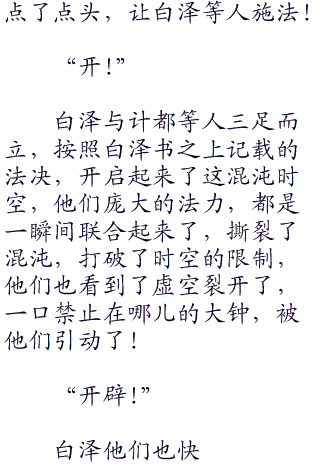 点了点头，让白泽等人施法！
“开！”
白泽与计都等人三足而
立，按照白泽书之上记载的
法决，开启起来了这混沌时
空，他们庞大的法力，都是
一瞬间联合起来了，撕裂了
混沌，打破了时空的限制，
他们也看到了虚空裂开了，
一口禁止在哪儿的大钟，被
他们引动了！
“开辟！”
白泽他们也快